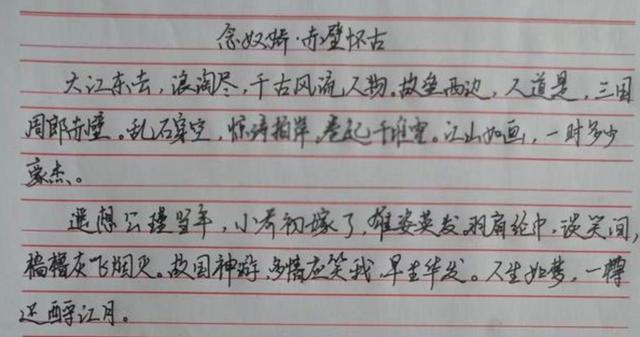 念奴娇·赤壁怀古
大江东去，浪淘尽，千古风流人物。故垒西边，人道是，三国
周郎赤壁。乱石穿空，惊涛拍岸，卷起千堆雪。江山如画，一时多少
豪杰。
遥想公瑾当年，小乔初嫁了，雄姿英发。羽扇纶巾，谈笑间，
樯橹灰飞烟灭。故国神游，多情应笑我，早生华发。人生如梦，一樽
还酹江月。